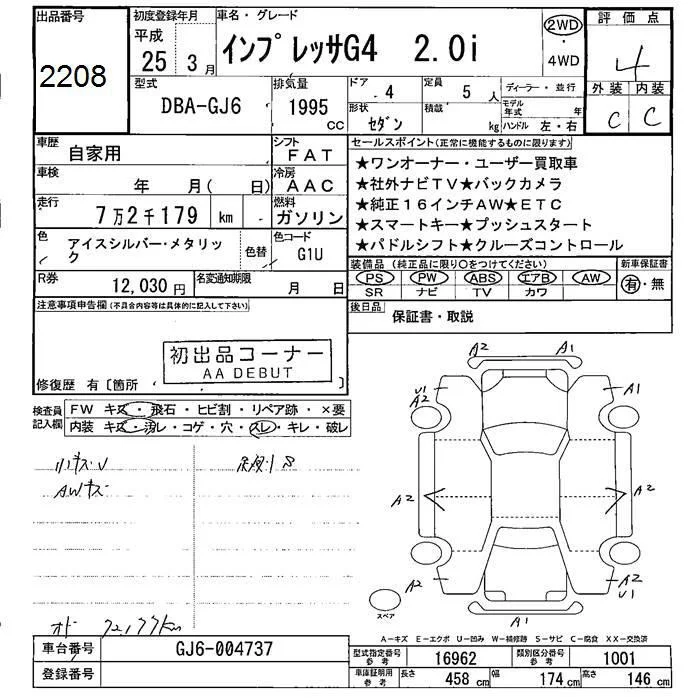 出品番号
2208
初度登録年月
平成
25年 3月
車名・グレード
インプレッサG4 2.0i
2WD
・
4WD
評価点
4
外装 内装
C C
型式
DBA-GJ6
排気量
1995
CC
ドア
4
定員
5人
形状
セダン
積載
kg
ディーラー・並行
モデル年式 年
ハンドル 左・右
車歴
自家用
シフト
FAT
車検
年 月( 日)
冷房
AAC
走行
7万2千179 km
燃料
ガソリン
色
アイスシルバー・メタリック
色替
色コード
G1U
R券
12,030円
名変通知期限
月 日
セールスポイント(正常に機能するものに限ります)
★ワンオーナー・ユーザー買取車
★社外ナビTV★バックカメラ
★純正16インチAW★ETC
★スマートキー★プッシュスタート
★パドルシフト★クルーズコントロール
装備品(純正品に限り○をつけてください)
PS PW ABS エアB AW
SR ナビ TV カワ
新車保証書
有・無
後日品
保証書・取説
注意事項申告欄(不具合内容等は具体的に記入して下さい)
初出品コーナー
AA DEBUT
修復歴 有〔箇所 〕
検査員
記入欄
FW キズ・飛石・ヒビ割・リペア跡・×要
内装 キズ・汚レ・コゲ・穴・スレ・キレ・破レ
小キズV
AWキズ
オド 72,177km
A2 A1
U1
A2
A1
A2
A2
A2
A2
U1
A1
スペア
A-キズ E-エクボ U-凹み W-補修跡 S-サビ C-腐食 XX-交換済
車台番号
GJ6-004737
登録番号
型式指定番号
参考
16962
類別区分番号
参考
1001
車庫証明用
参考
長さ 458 cm
幅 174 cm
高さ 146 cm